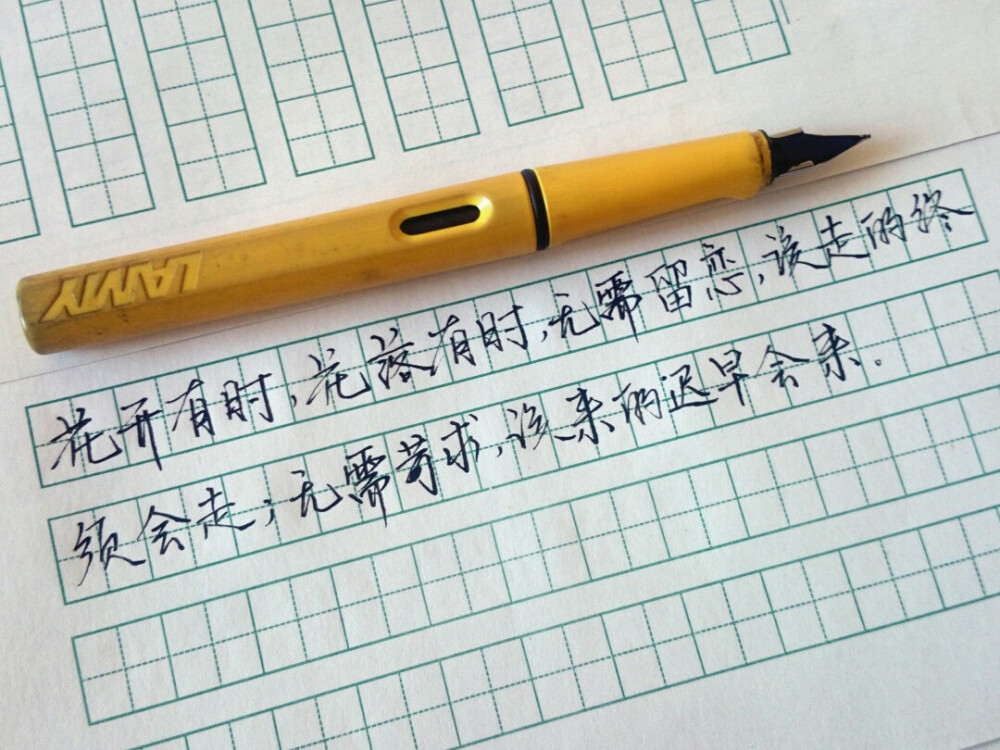 LAMY
花开有时,花落有时,无需留恋,该走的终
须会走;无需苛求,该来的迟早会来.